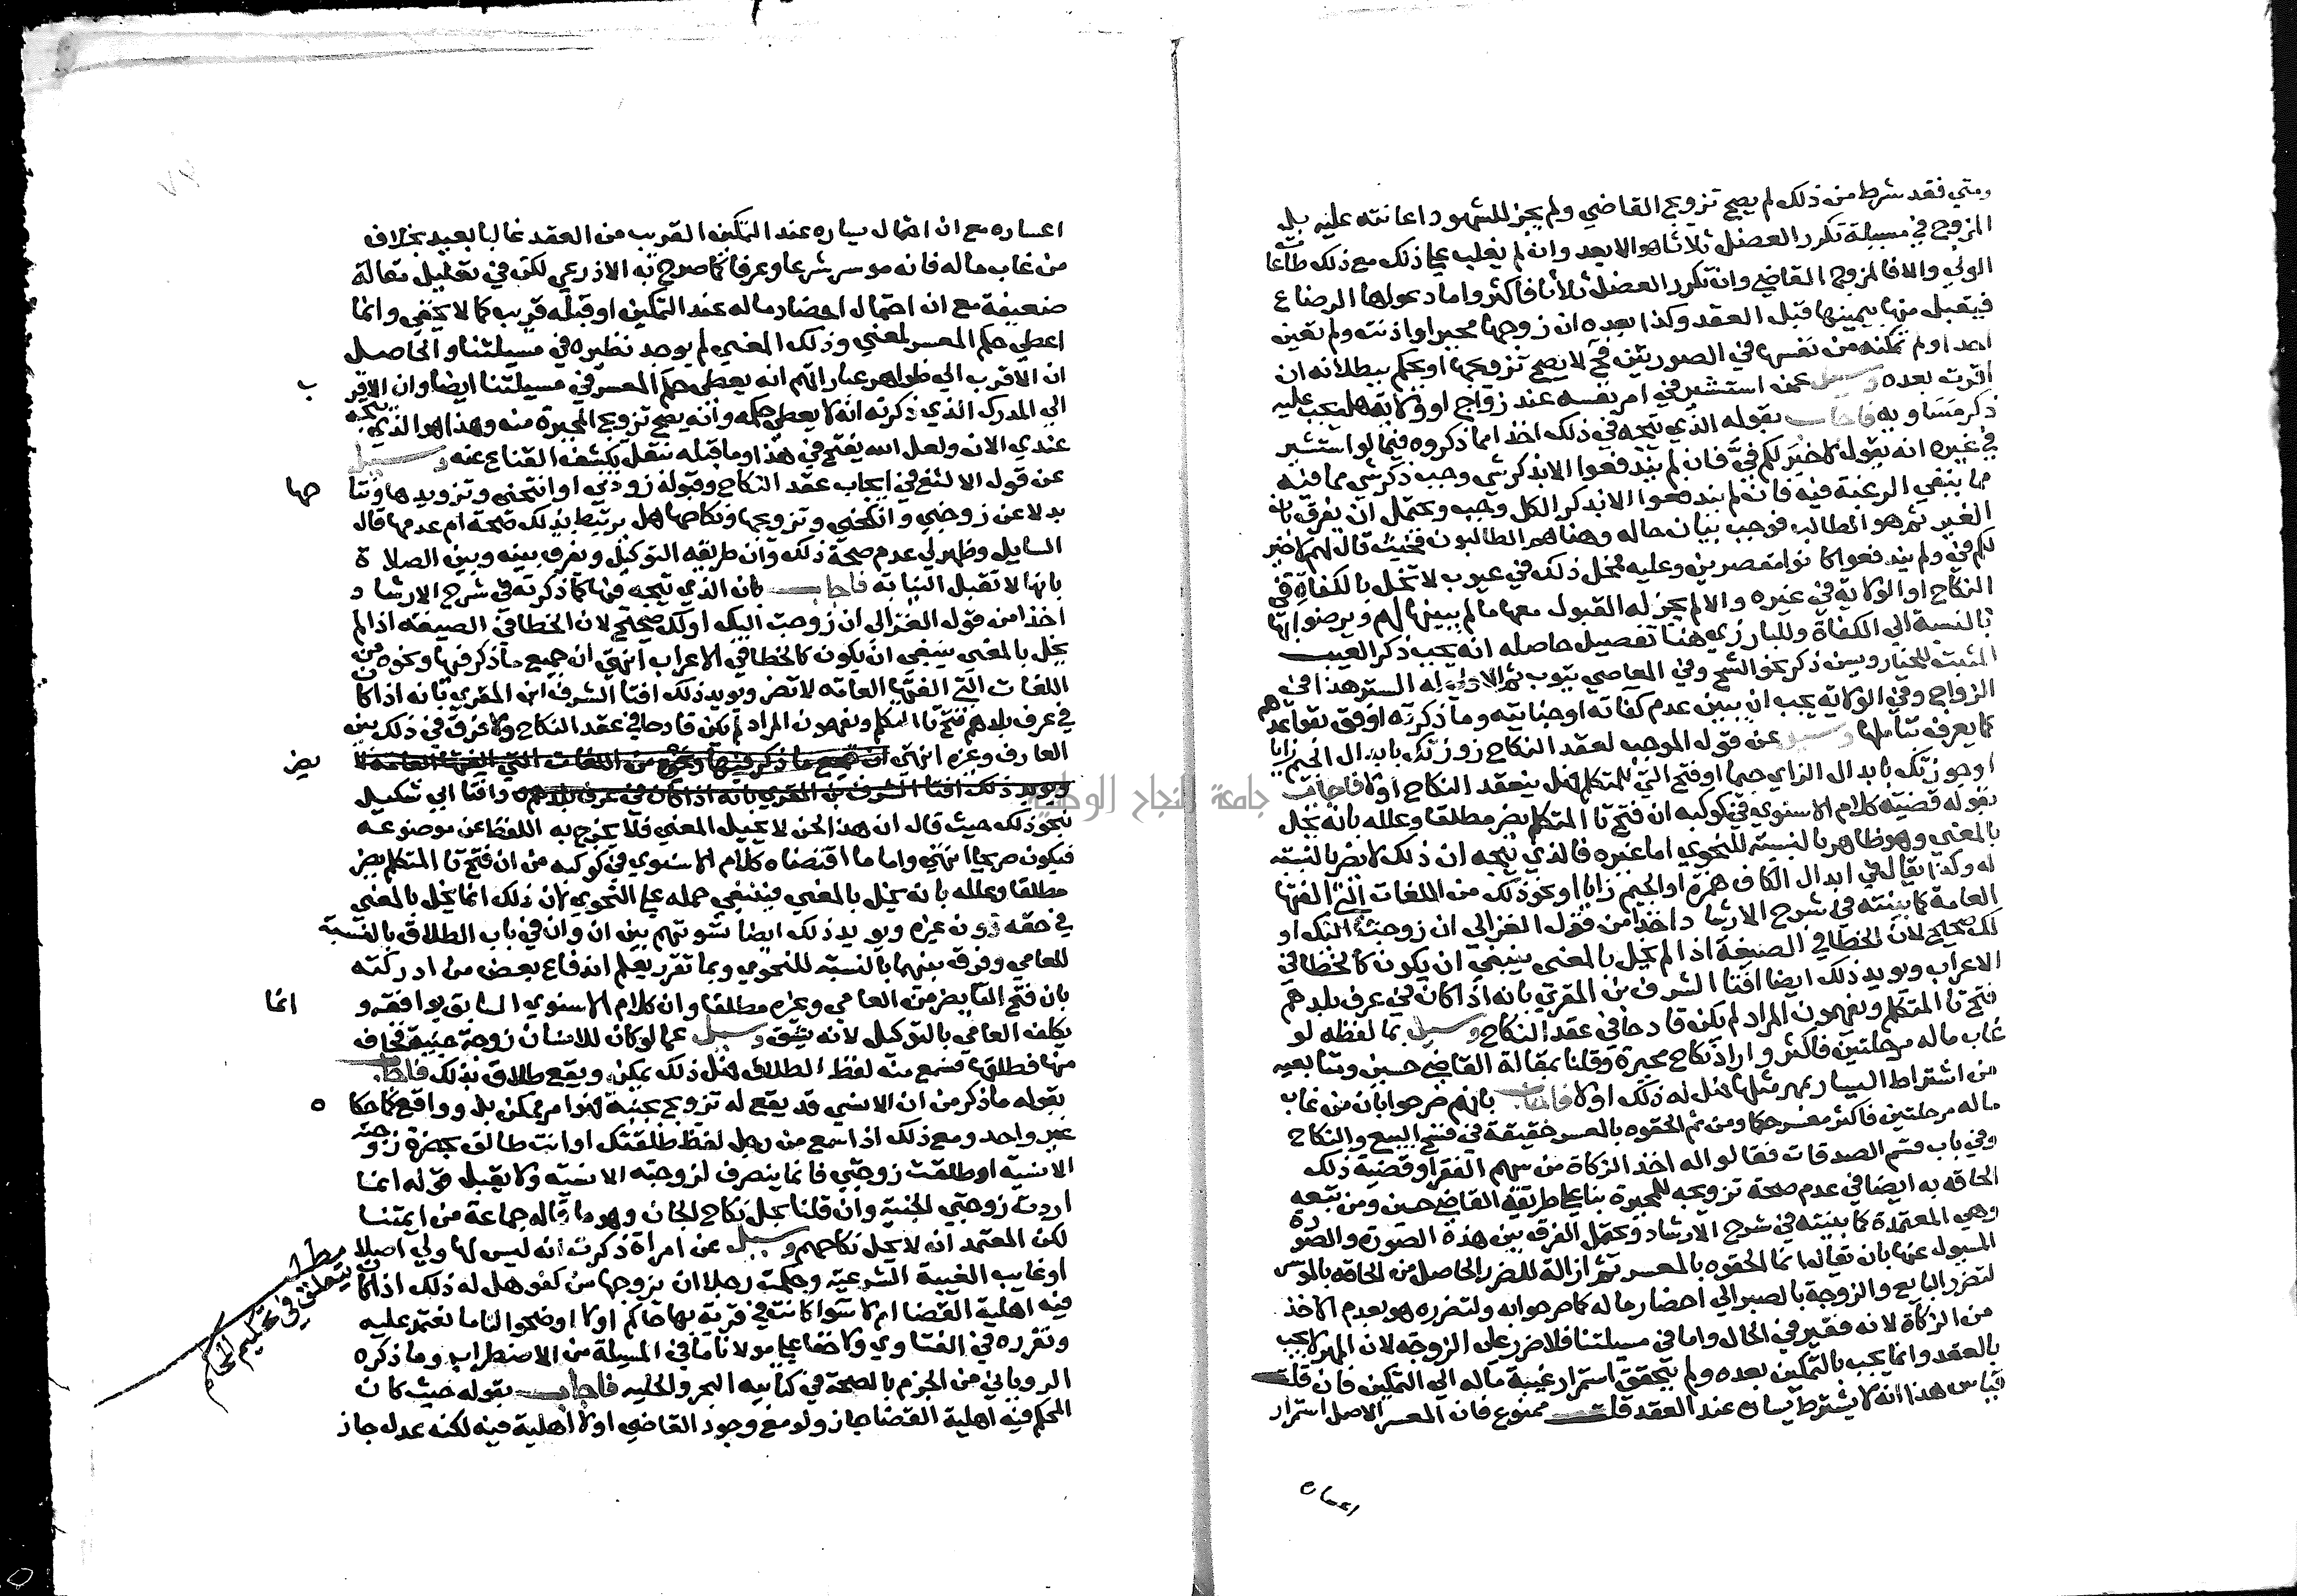 ومتى فقد شرط من ذلك لم يصح تزويج القاضي ولم يجز للشهود اعانته عليه بل
المزوج في مسيلة تكرر العضل ثلاثا هو الابعد وان لم يغلب على ذلك مع ذلك طاعاته
الولي والا فالمزوج القاضي وان تكرر العضل ثلاثا فاكثر واما دعواها الرضاع
فيقبل منها بيمينها قبل العقد وكذا بعده ان زوجها مجبر او اذنت ولم تعين
احدا ولم تمكنه من نفسها في الصورتين فح لا يصح تزويجها او يحكم ببطلانه ان
اقرت بعده وسيل عمن استشير في امر نفسه عند زواج او ولاية هل يجب عليه
ذكر مساويه فاجاب بقوله الذي يتجه في ذلك اخذا مما ذكروه فيما لو استشير
في غيره انه يقول لا خير لكم في فان لم يندفعوا الا بذكر شي وجب ذكر شي مما فيه
مما ينفي الرغبة فيه فان لم يندفعوا الا بذكر الكل وجب ويحتمل ان يفرق بان
الغير ثم هو الطالب فوجب بيان حاله وهنا هم الطالبون فحيث قال لهم لا خير
لكم في ولم يندفعوا كانوا مقصرين وعليه فمحل ذلك في عيوب لا تخل بالكفاة في
النكاح او الولاية في غيره والا لم يجز له القبول معها ما لم يبينها لهم ويرضوا بها
بالنسبة الى الكفاة وللبارزي هنا تفصيل حاصله انه يجب ذكر العيب
المثبت للخيار ويسن ذكر نحو الشح وفي المعاصي يتوب ثم الاولى له الستر هذا في
الزواج وفي الولاية يجب ان يبين عدم كفاته او خيانته وما ذكرته اوفق بقواعدهم
كما يعرف بتاملها وسيل عن قول الموجب لعقد النكاح زوزتك بابدال الجيم زايا
او جوزتك بابدال الزاي جيما او فتح التي للمتكلم هل ينعقد النكاح او لا فاجاب
بقوله قضية كلام الاسنوي في كوكبه ان فتح تا المتكلم يضر مطلقا وعلله بانه يخل
بالمعنى وهو ظاهر بالنسبة للنحوي اما غيره فالذي يتجه ان ذلك لا يضر بالنسبة
له وكذا يقال في ابدال الكاف همزة او الجيم زايا او نحو ذلك من اللغات التي الفتها
العامة كما بينته في شرح الارشاد اخذا من قول الغزالي ان زوجت اليك او
لك صحيح لان الخطا في الصيغة اذا لم يخل بالمعنى ينبغي ان يكون كالخطا في
الاعراب ويويد ذلك ايضا افتا الشرف بن المقري بانه اذا كان في عرف بلدهم
فتح تا المتكلم ويفهمون المراد لم يكن قادحا في عقد النكاح وسيل بما لفظه لو
غاب ماله مرحلتين فاكثر واراد نكاح مجبرة وقلنا بمقالة القاضي حسين وتابعيه
من اشتراط اليسار بمهر مثلها هل له ذلك او لا فاجاب بانهم صرحوا بان من غاب
ماله مرحلتين فاكثر معسر حكما ومن ثم الحقوه بالمعسر حقيقة في فسخ البيع والنكاح
وفي باب قسم الصدقات فقالوا له اخذ الزكاة من سهم الفقرا وقضية ذلك
الحاقه به ايضا في عدم صحة تزويجه للمجبرة بنا على طريقة القاضي حسين ومن تبعه
وهي المعتمدة كما بينته في شرح الارشاد ويحتمل الفرق بين هذه الصورة والصورة
المسيول عنها بان يقال انما الحقوه بالمعسر ثم ازالة للضرر الحاصل من الحاقه بالموسر
لتضرر البايع والزوجة بالصبر الى احضار ماله كما صرحوا به ولتضرره هو بعدم الاخذ
من الزكاة لانه فقير في الحال واما في مسيلتنا فلا ضرر على الزوجة لان المهر لا يجب
بالعقد وانما يجب بالتمكين بعده ولم يتحقق استمرار غيبة ماله الى التمكين فان قلت
قياس هذا انه لا يشترط يساره عند العقد قلت ممنوع فان المعسر الاصل استمرار
اعساره
اعساره مع ان احتمال يساره عند التمكين القريب من العقد غالبا بعيد بخلاف
من غاب ماله فانه موسر شرعا وعرفا كما صرح به الاذرعي لكن في تعليل مقالة
ضعيفة مع ان احتمال احضار ماله عند التمكين او قبله قريب كما لا يخفى وانما
اعطي حكم المعسر لمعنى وذلك المعنى لم يوجد نظيره في مسيلتنا والحاصل
ان الاقرب الى ظواهر عباراتهم انه يعطى حكم المعسر في مسيلتنا ايضا وان الاقرب
الى المدرك الذي ذكرته انه لا يعطى حكمه وانه يصح تزويج المجبرة منه وهذا هو الذي يتجه
عندي الان ولعل الله يفتح في هذا وما قبله بنقل يكشف القناع عنه وسيل
عن قول الالثغ في ايجاب عقد النكاح وقبوله زوذني او انتحني وتزويدها ونتاحها
بدلا عن زوجني وانكحني وتزويجها ونكاحها هل يرتبط بذلك صحة ام عدمها قال
السايل وظهر لي عدم صحة ذلك وان طريقه التوكيل ويفرق بينه وبين الصلاة
بانها لا تقبل النيابة فاجاب بان الذي يتجه فيها كما ذكرته في شرح الارشاد
اخذا من قول الغزالي ان زوجت اليك او لك صحيح لان الخطا في الصيغة اذا لم
يخل بالمعنى ينبغي ان يكون كالخطا في الاعراب انتهى ان جميع ما ذكر فيها ونحوه من
اللغات التي الفتها العامة لا تضر ويويد ذلك افتا الشرف ابن المقري بانه اذا كان
في عرف بلدهم فتح تا المتكلم ويفهمون المراد لم يكن قادحا في عقد النكاح ولا فرق في ذلك بين
العارف وغيره انتهى ان جميع ما ذكر فيها ونحوه من اللغات التي الفتها العامة لا يضر
ويويد ذلك افتا الشرف بن المقري بانه اذا كان في عرف بلدهم وافتا ابي شكيل
بنحو ذلك حيث قال ان هذا لحن لا يحيل المعنى فلا يخرج به اللفظ عن موضوعه
فيكون صريحا انتهى واما ما اقتضاه كلام الاسنوي في كوكبه من ان فتح تا المتكلم يضر
مطلقا وعلله بانه يخل بالمعنى فينبغي حمله على النحوي لان ذلك انما يخل بالمعنى
في حقه دون غيره ويويد ذلك ايضا تسويتهم بين ان وان في باب الطلاق بالنسبة
للعامي وفرقه بينهما بالنسبة للنحوي وبما تقرر يعلم اندفاع بعض من ادركته
بان فتح التا يضر من العامي وغيره مطلقا وان كلام الاسنوي السابق يوافقه وانما
يكلف العامي بالتوكيل لانه يشق وسيل عما لو كان للانسان زوجة جنية فخاف
منها فطلقها فسمع منه لفظ الطلاق هل ذلك يمكن ويقع طلاق بذلك فاجاب
بقوله ما ذكر من ان الانسي قد يقع له تزويج بجنية هو امر ممكن بل وواقع كما حكاه
غير واحد ومع ذلك اذا سمع من رجل لفظ طلقتك او انت طالق بحضرة زوجته
الانسية او طلقت زوجتي فانما ينصرف لزوجته الانسية ولا يقبل قوله انما
اردت زوجتي الجنية وان قلنا بحل نكاح الجان وهو ما قاله جماعة من ايمتنا
لكن المعتمد انه لا يحل نكاحهم وسيل عن امراة ذكرت انه ليس لها ولي اصلا
او غايب الغيبة الشرعية وحكمت رجلا ان يزوجها من كفو هل له ذلك اذا كان
فيه اهلية القضا ام لا سوا كانت في قرية بها حاكم او لا اوضحوا لنا ما نعتمد عليه
ونقرره في الفتاوي ولا خفا على مولانا ما في المسيلة من الاضطراب وما ذكره
الروياني من الجزم بالصحة في كتابيه البحر والحلية فاجاب بقوله حيث كان
المحكم فيه اهلية القضا جاز ولو مع وجود القاضي او لا اهلية فيه لكنه عدل جاز
مطلب
يتعلق في تحكيم الحاكم
جامعة النجاح الوطنية